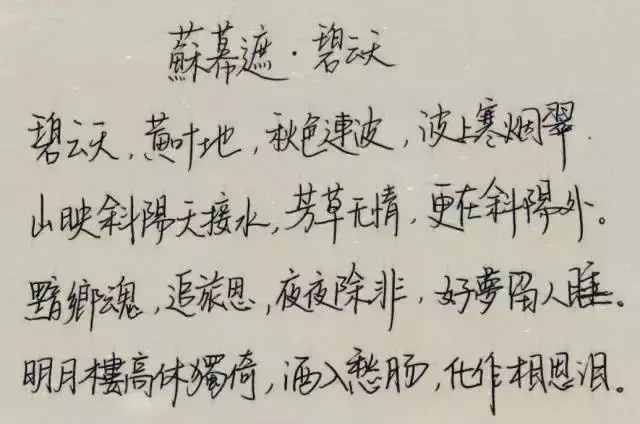 蘇幕遮·碧云天
碧云天，黄叶地，秋色連波，波上寒烟翠．
山映斜陽天接水，芳草无情，更在斜陽外。
黯鄉魂，追旅思，夜夜除非，好夢留人睡。
明月樓高休獨倚，酒入愁肠，化作相思泪。